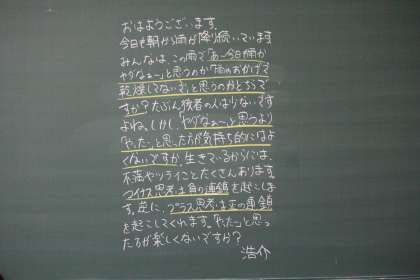 おはようございます。
今日も朝から雨が降り続いています
みんなは、この雨で「あ〜今日も雨か
ヤダなぁ〜」と思うのか「雨のおかげで
乾燥してないぞ」と思うのかどちらで
すか？たぶん後者の人は少ないです
よね。しかし、「ヤダなぁ〜」と思うより
「やった」と思った方が気持ち的にはよ
くないですか。生きているからには、
不満やツライことたくさんあります。
マイナス思考は負の連鎖を起こしま
す。逆に、プラス思考は正の連鎖
を起こしてくれます。「やった」と思っ
た方が楽しくないですか？
浩介